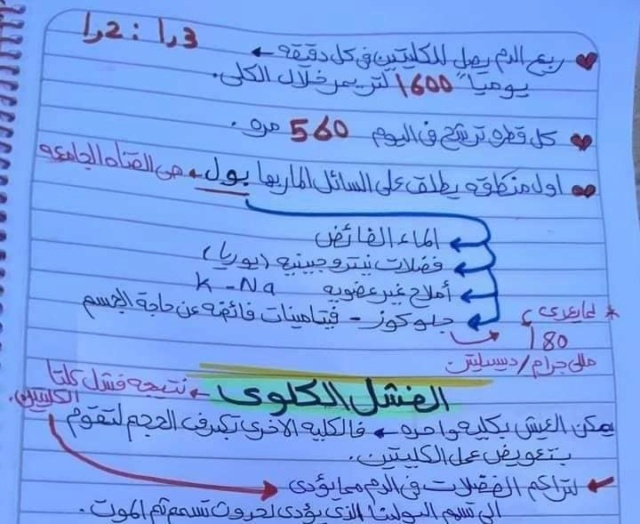 ربع الدم يصل للكليتين في كل دقيقه ← 1,2 : 1,3
يوميا" 1600 لتر يمر خلال الكلى.
كل قطره ترشح في اليوم 560 مره.
اول منطقه يطلق على السائل المار بها بول ← هي القناه الجامعه
الماء الفائض
فضلات نيتروجينيه (يوريا)
أملاح غير عضويه K - Na
جلوكوز - فيتامينات فائضه عن حاجة الجسم
* لما يعدى
180
مللي جرام / ديسيلتر
الفشل الكلوى ← نتيجه فشل كلتا الكليتين.
يمكن العيش بكليه واحده ← فالكليه الاخرى تكبر في الحجم لتقوم
بتعويض عمل الكليتين.
لتراكم الفضلات في الدم مما يؤدى
الى تسمم البولينا الذي يؤدى لحدوث تسمم ثم الموت.